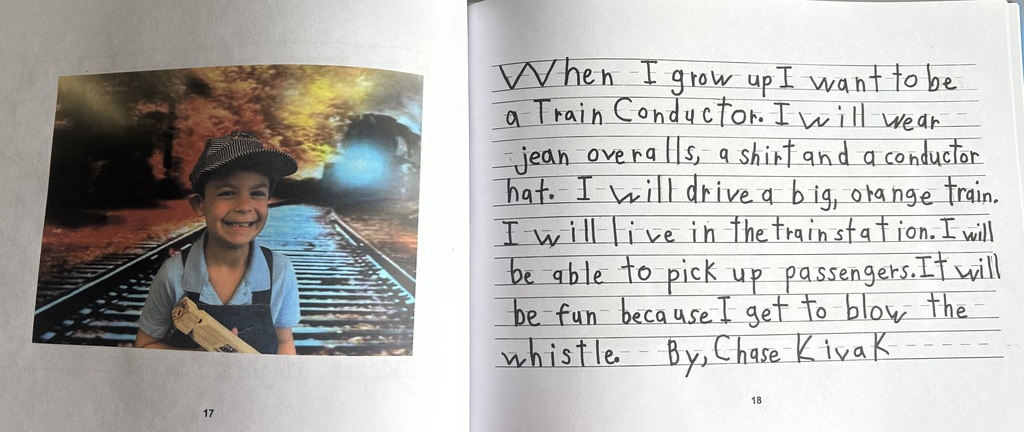 When I grow up I want to be
a Train Conductor. I will wear
jean overalls, a shirt and a conductor
hat. I will drive a big, orange train.
I will live in the train station. I will
be able to pick up passengers. It will
be fun because I get to blow the
whistle. By, Chase Kivak
17
18